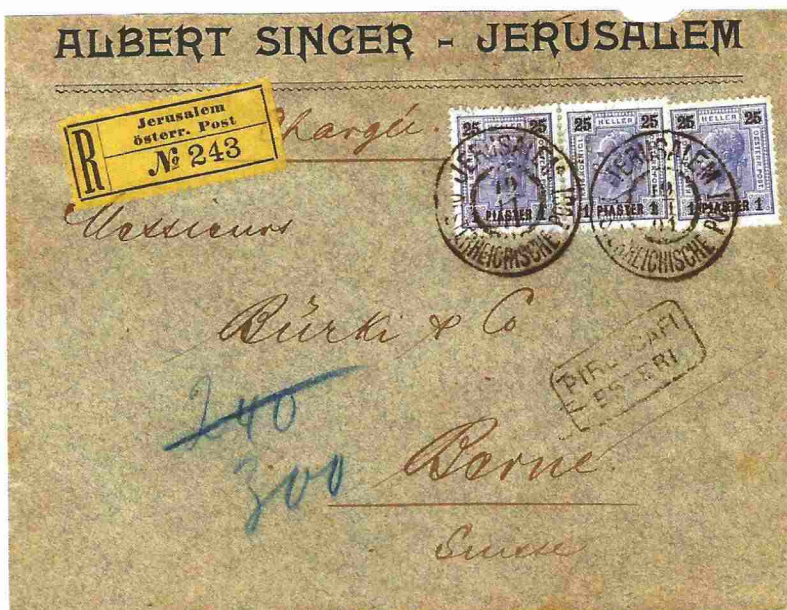 ALBERT SINGER - JERUSALEM
R
Jerusalem
österr. Post
№ 243
Chargée.
25 HELLER 25
1 PIASTER 1
25 HELLER 25
1 PIASTER 1
25 HELLER 25
1 PIASTER 1
JERUSALEM
ÖSTERREICHISCHE POST
JERUSALEM
ÖSTERREICHISCHE POST
Messieurs
Bürki & Co
PIROSCAFI
ESTERI
240
300
Berne.
Suisse